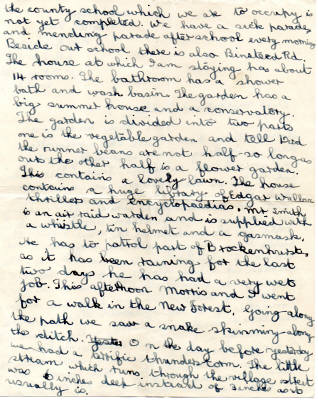 the country school which we are to occupy is
not yet completed. We have a sick parade,
and mending parade after school every morning
Beside our school there is also Binsteed Rd.
The house at which I am staying has about
14 rooms. The bathroom has a shower
bath and wash basin. The garden has a
big summer house and a conservatory.
The garden is divided into two parts
one is the vegetable garden and tell Dad
the runner beans are not half-so long as
ours the other half is a flower garden.
This contains a lovely lawn. The house
contains a huge library of Edgar Wallace
thrillers and Encyclopaedias. Mr Smith
is an air raid warden and is supplied with
a whistle, tin helmet and a gasmask,
He has to patrol part of Brockenhurst,
as it has been raining for the last
two days he has had a very wet
job. This afternoon Morris and I went
for a walk in the New Forest, Going along
the path we saw a snake skimming along
the ditch. On the day before yesterday
we had a terrific thunderstorm. The little
stream which runs through the village street
was inches deep instead of 3 inches as it
usually is.